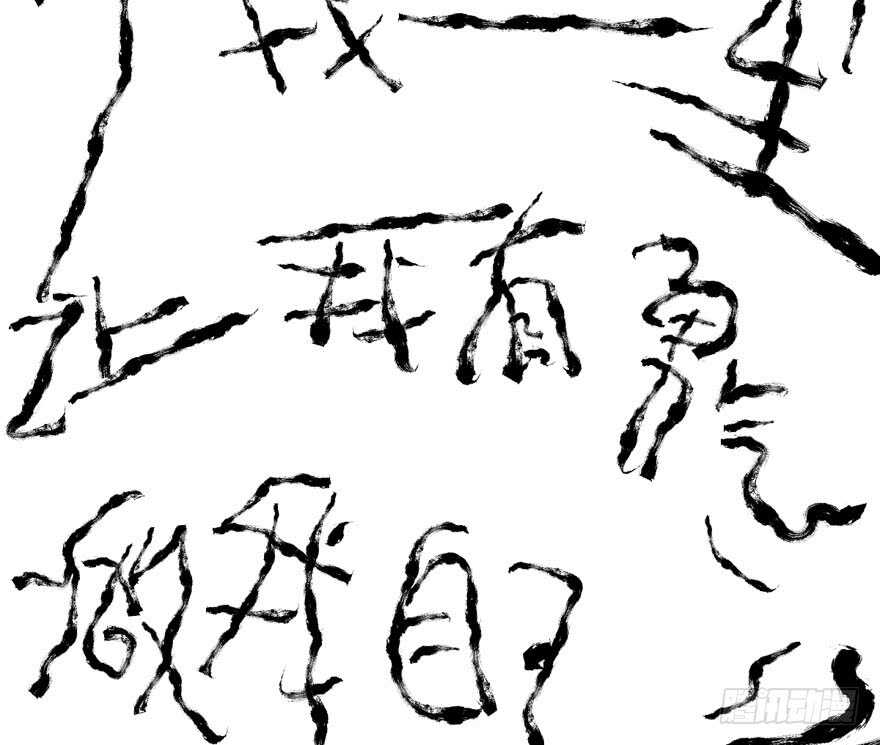 我一生
让我有勇气
做我自己
腾讯动漫